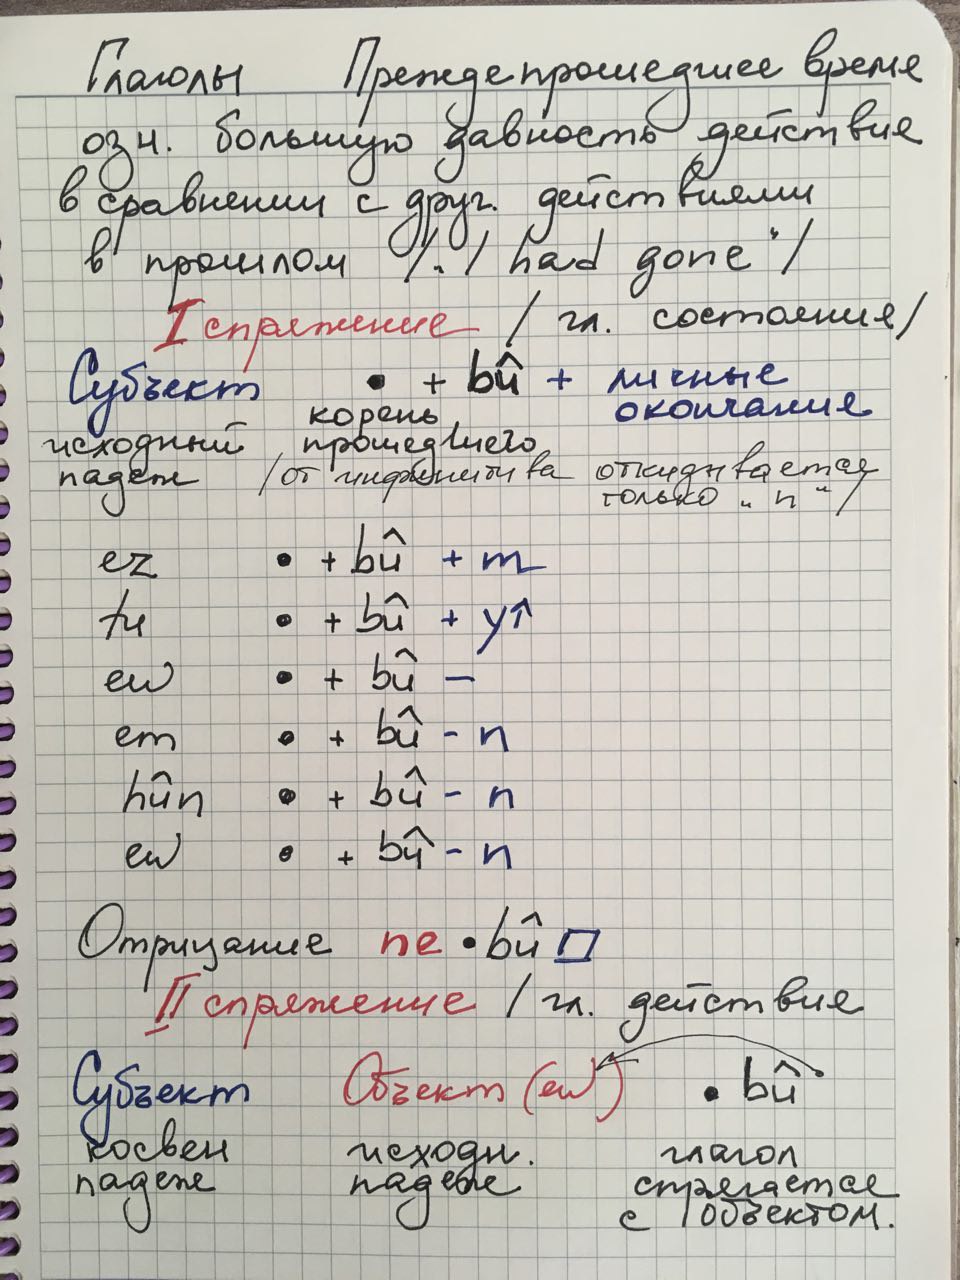 Глаголы Преждепрошедшее время
озн. большую давность действия
в сравнении с друг. действиями
в прошлом /„I had gone"/
I спряжение /гл. состояния/
Субъект • + bû + личные окончания
исходный падеж корень прошедшего
/от инфинитива откидывается только „n"/
ez • + bû + m
tu • + bû + y↑
ew • + bû –
em • + bû - n
hûn • + bû - n
ew • + bû - n
Отрицание ne • bû ▱
II спряжение /гл. действия
Субъект Объект (ew) • bû
косвен падеж исходн. падеж глагол спрягается с объектом.